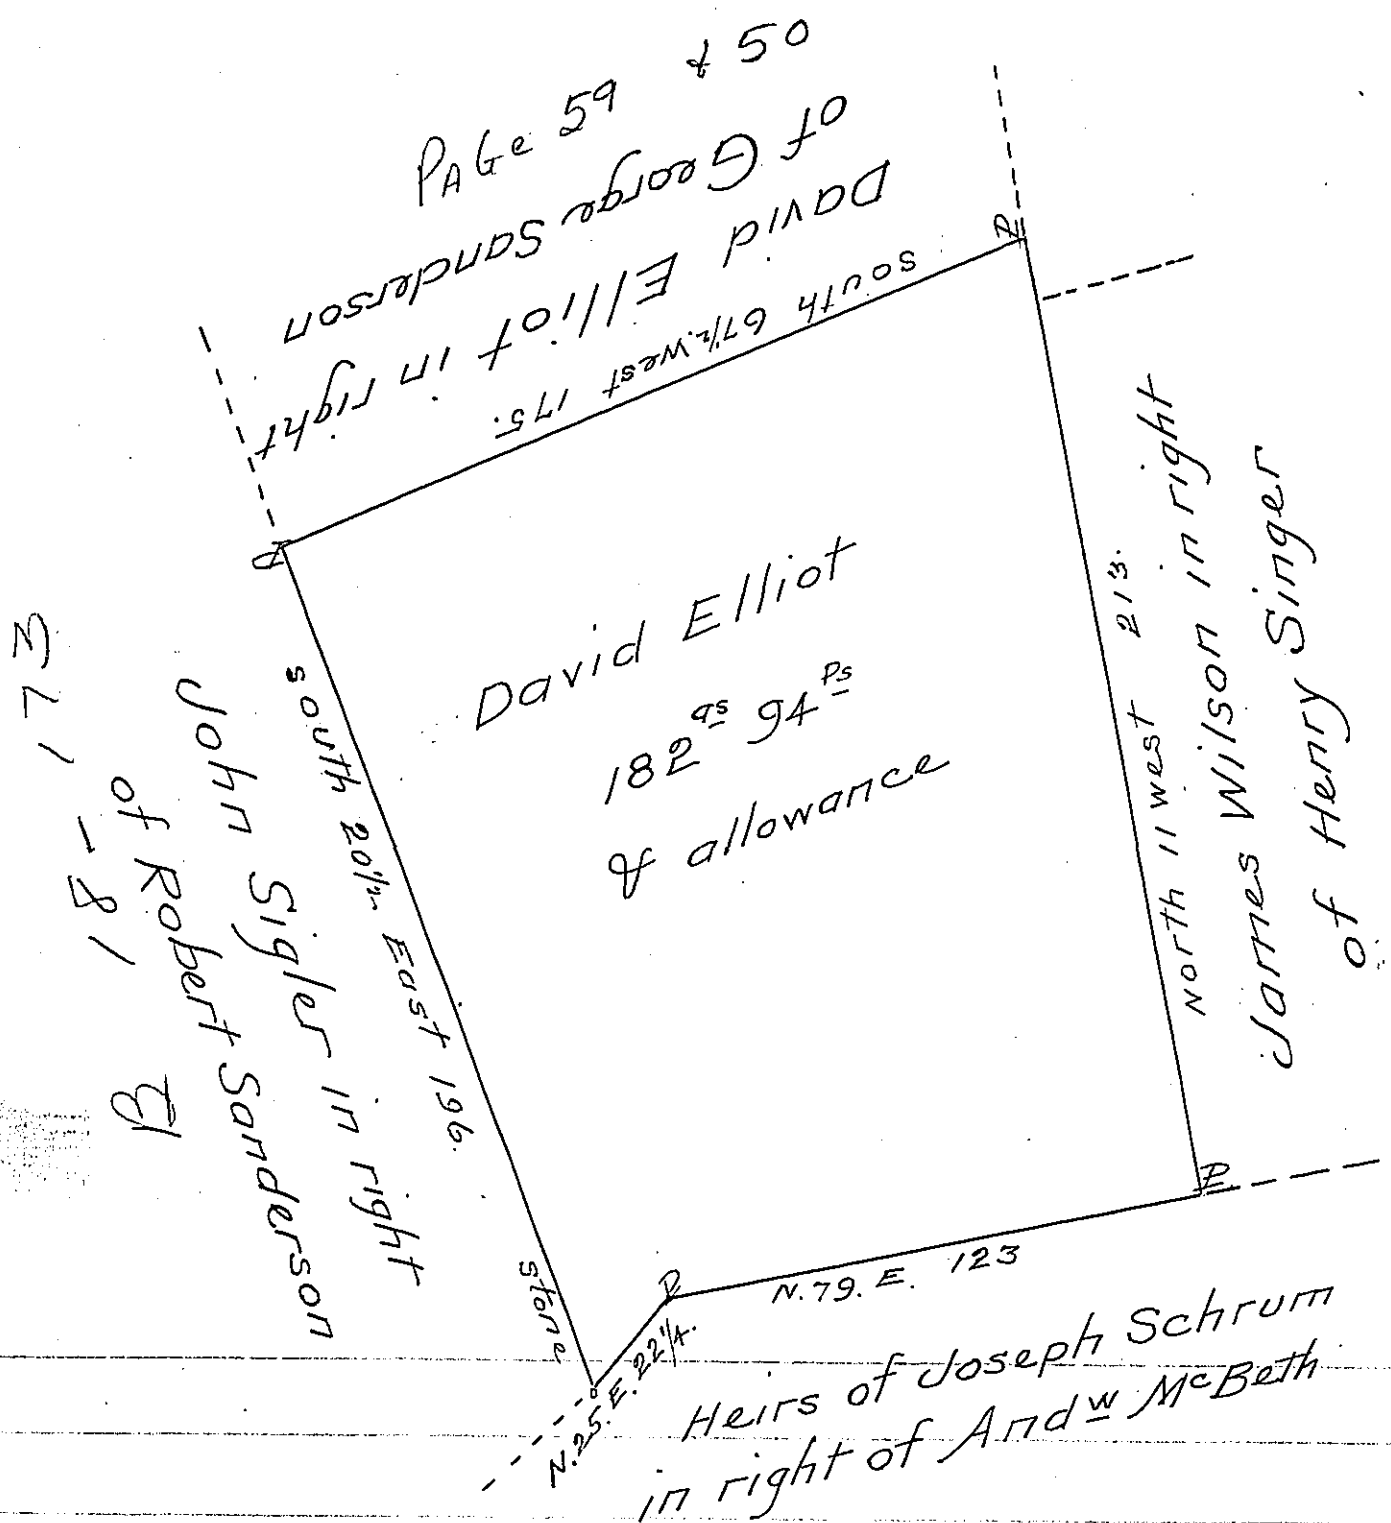 PAGe 59 & 50
David Elliot in right
of George Sanderson
south 67½ west 175.
David Elliot
182 as 94 ps
& allowance
north 11 west 213.
James Wilson in right
of Henry Singer
south 20½ East 196.
John Sigler in right
of Robert Sanderson
B 18-173
stone
N. 25. E. 22¼.
N. 79. E. 123
Heirs of Joseph Schrum
in right of Andw McBeth
P
P
P
P